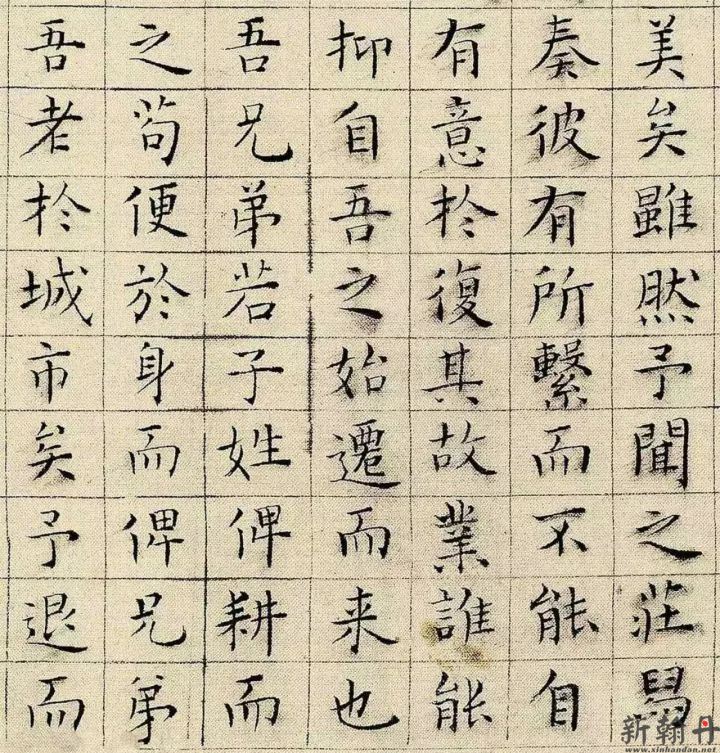 美矣雖然予聞之莊舄
奏彼有所繫而不能自
有意扵復其故業誰能
抑自吾之始遷而来也
吾兄弟若子姓俾耕而
之苟便於身而俾兄弟
吾老扵城市矣予退而
新翰丹
www.xinhandan.net